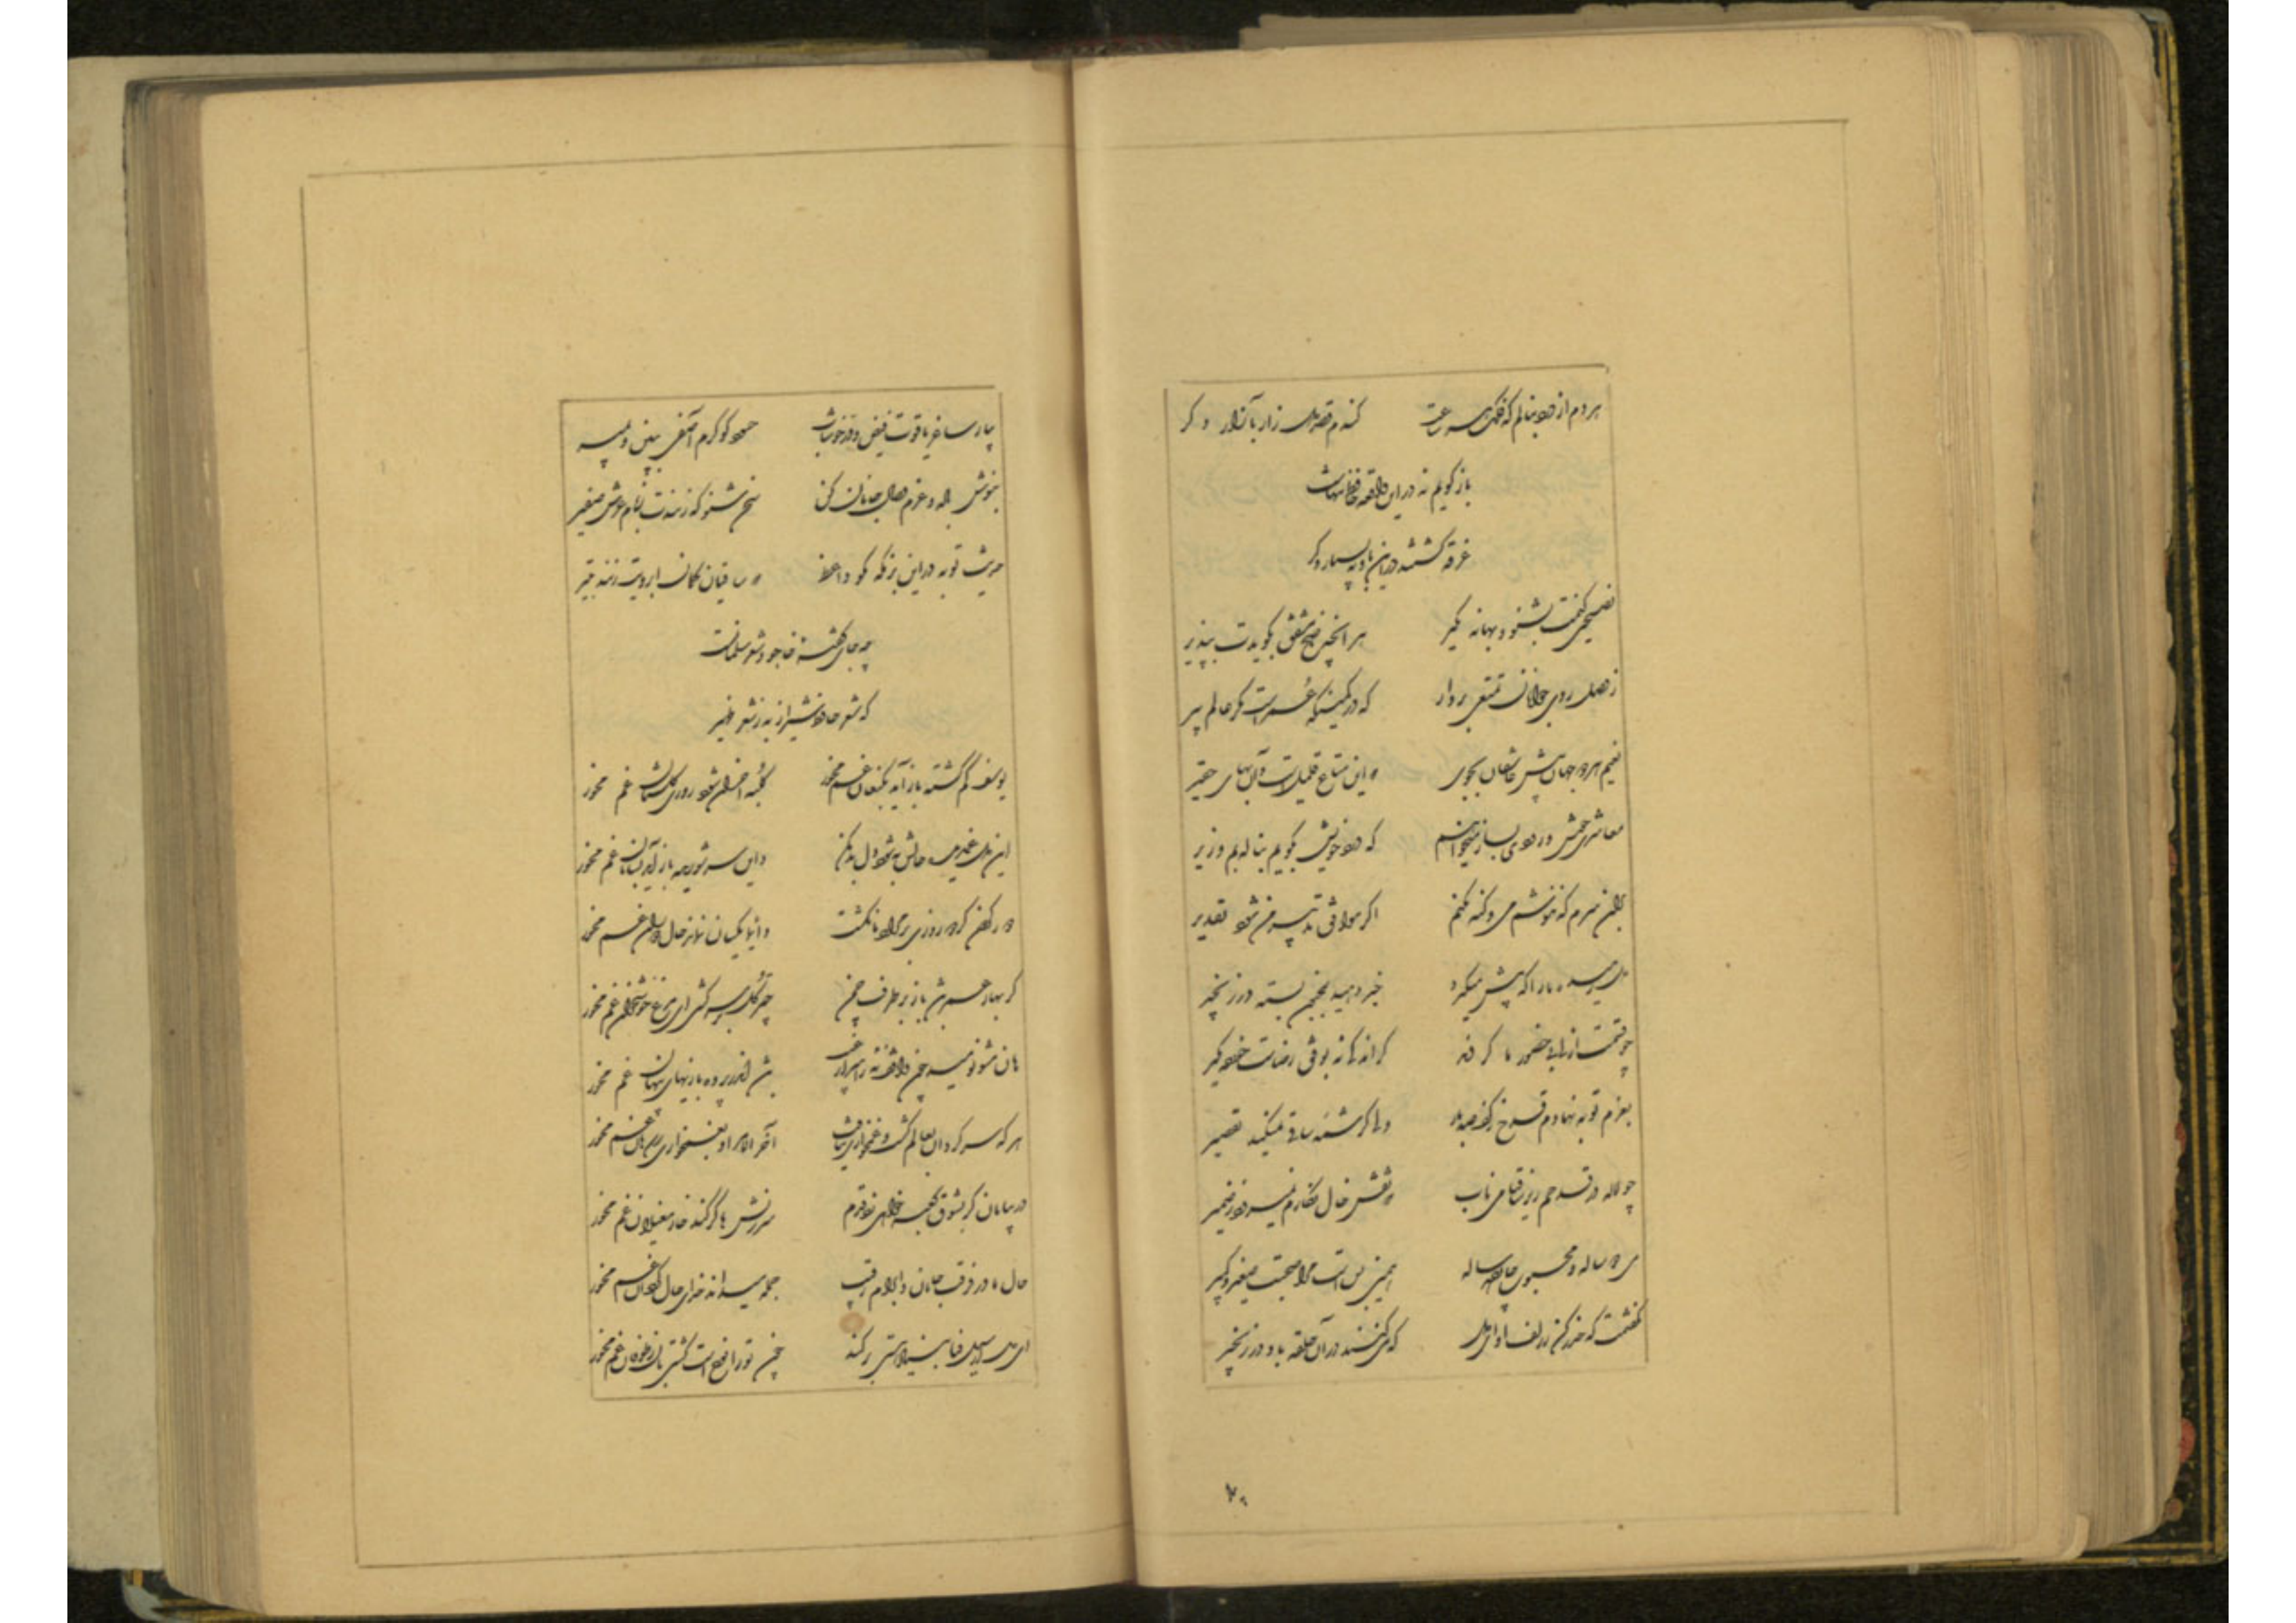 هر دم از درد بنالم که فلک هر ساعت کندم قصد دل زار بازار دگر
باز گویم نه در این واقعه حافظ تنهاست
غرقه گشتند در این بادیه بسیار دگر
نصیحتی کنمت بشنو و بهانه مگیر هر آنچه ناصح مشفق بگویدت بپذیر
ز وصل روی جوانان تمتعی بردار که در کمینگه عمر است مکر عالم پیر
نعیم هر دو جهان پیش عاشقان بجوی که این متاع قلیل است و آن بهای حقیر
معاشری خوش و رودی بساز میخواهم که درد خویش بگویم بناله بم و زیر
بر آن سرم که ننوشم می و گنه نکنم اگر موافق تدبیر من شود تقدیر
دل رمیده ما را که پیش میگیرد خبر دهید بمجنون بسته در زنجیر
چو قسمت ازلی بی حضور ما کردند گر اندکی نه بوفق رضاست خرده مگیر
بعزم توبه نهادم قدح ز کف صد بار ولی کرشمه ساقی نمیکند تقصیر
چو لاله در قدحم ریز ساقیا می ناب که نقش خال نگارم نمیرود ز ضمیر
می دو ساله و محبوب چارده ساله همین بس است مرا صحبت صغیر و کبیر
نگفتمت که حذر کن ز زلف او ای دل که می کشند در آن حلقه باد در زنجیر
بیار ساغر یاقوت فیض و در خوشاب حسود گو کرم آصفی ببین و بمیر
بنوش باده و عزم وصال جانان کن سخن شنو که زنندت ز بام عرش صفیر
حدیث توبه در این بزمگه مگو واعظ که ساقیان کمان ابرویت زنند بتیر
چه جای گفته خواجو و شعر سلمانست
که شعر حافظ شیراز به ز شعر ظهیر
یوسف گم گشته باز آید بکنعان غم مخور کلبه احزان شود روزی گلستان غم مخور
این دل غمدیده حالش به شود دل بد مکن واین سر شوریده باز آید بسامان غم مخور
دور گردون گر دو روزی بر مراد ما نگشت دائما یکسان نماند حال دوران غم مخور
گر بهار عمر باشد باز بر طرف چمن چتر گل بر سر کشی ای مرغ خوشخوان غم مخور
هان مشو نومید چون واقف نه ز اسرار غیب باشد اندر پرده بازیهای پنهان غم مخور
هر که سرگردان بعالم گشت و غمخواری نیافت آخر الامر او بغمخواری رسد هان غم مخور
در بیابان گر بشوق کعبه خواهی زد قدم سرزنشها گر کند خار مغیلان غم مخور
حال ما در فرقت جانان و ابرام رقیب جمله میداند خدای حال گردان غم مخور
ای دل ار سیل فنا بنیاد هستی بر کند چون تو را نوح است کشتیبان ز طوفان غم مخور